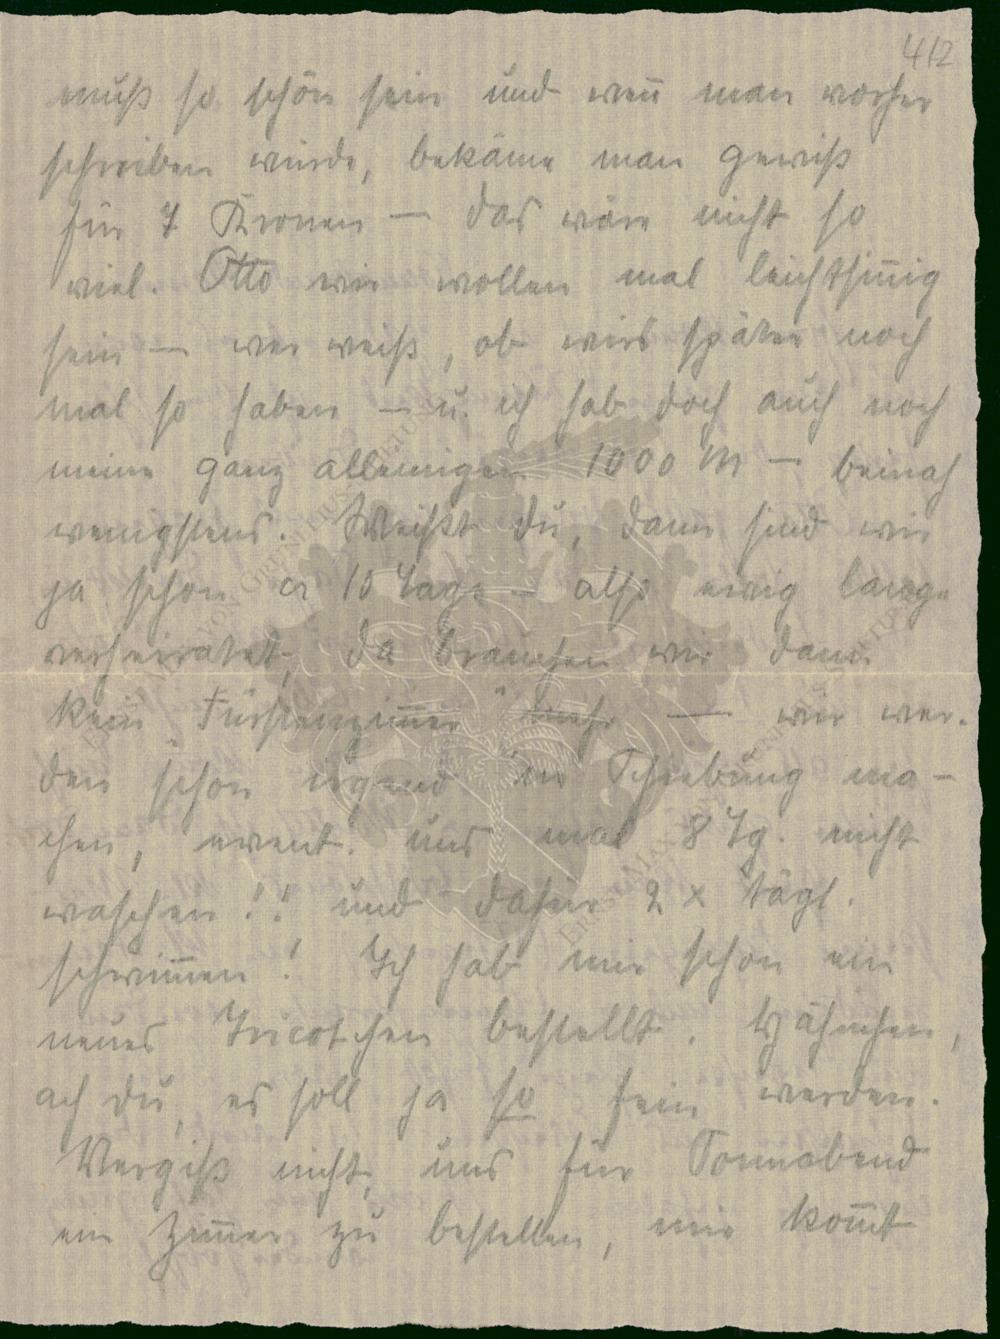 412
muß so schön sein und weñ man vorher
schreiben würde, bekäme man gewiß
für 7 Kronen — das wäre nicht so
viel. Otto wir wollen mal leichtsiñig
sein — wer weiß, ob wirs später noch
mal so haben — u. ich hab doch auch noch
meine ganz alleinigen 1000 M — beinah
wenigstens. Weißt du, dann sind wir
ja schon 15 Tage — also ewig lange
verheiratet, da brauchen wir dann
kein „Fürstenzim̃er" mehr — wir wer-
den schon irgend 'ne Schiebung ma-
chen, event. uns mal 8 Tg. nicht
waschen!! und dafür 2 x tägl.
schwim̃en! Ich hab mir schon ein
neues Tricotchen bestellt. Hähnchen,
ach du, es soll ja so fein werden.
Vergiß nicht, uns für Sonnabend
ein Zim̃er zu bestellen, mir kom̃t